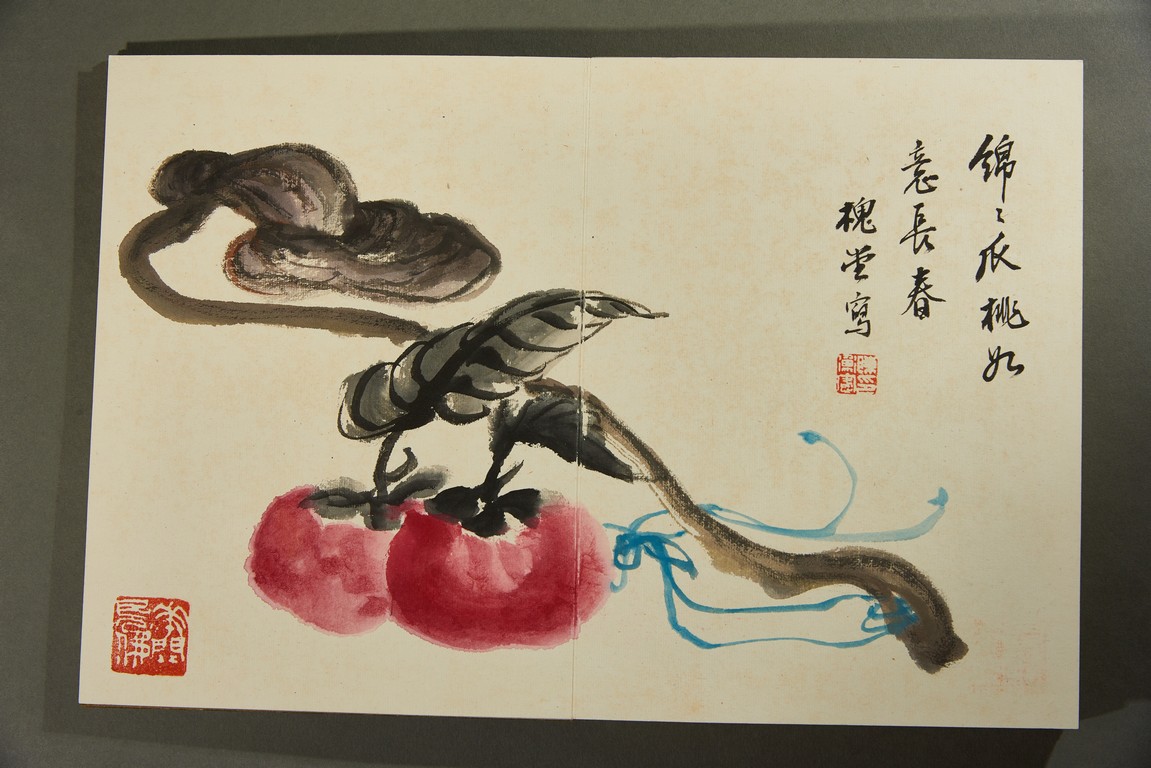 錦〻瓜桃如
意長春
槐堂寫